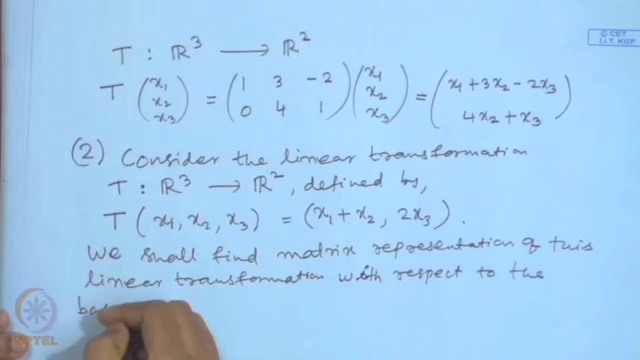 © CET
I.I.T. KGP
T : ℝ³ ⟶ ℝ²
T (x₁ x₂ x₃) = (1 3 -2 0 4 1) (x₁ x₂ x₃) = (x₁ + 3x₂ - 2x₃ 4x₂ + x₃)
(2) Consider the linear transformation
T : ℝ³ → ℝ², defined by,
T (x₁, x₂, x₃) = (x₁ + x₂, 2x₃).
We shall find matrix representation of this
linear transformation with respect to the